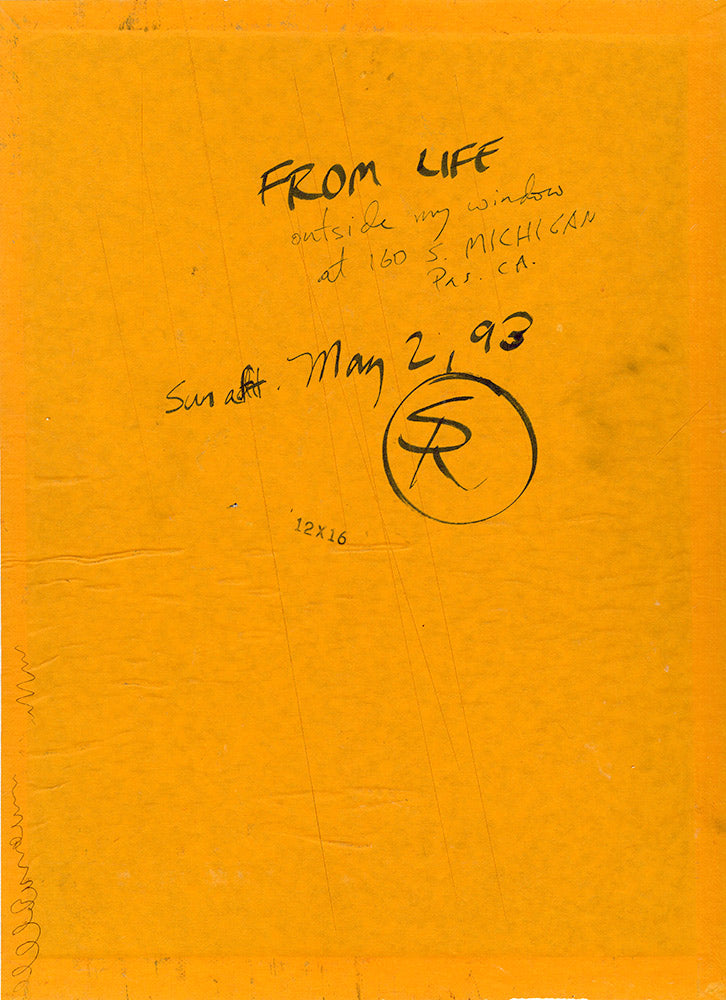 FROM LIFE
outside my window
at 160 S. MICHIGAN
Pas. CA.
Sun aft. May 2, 93
SR
12X16